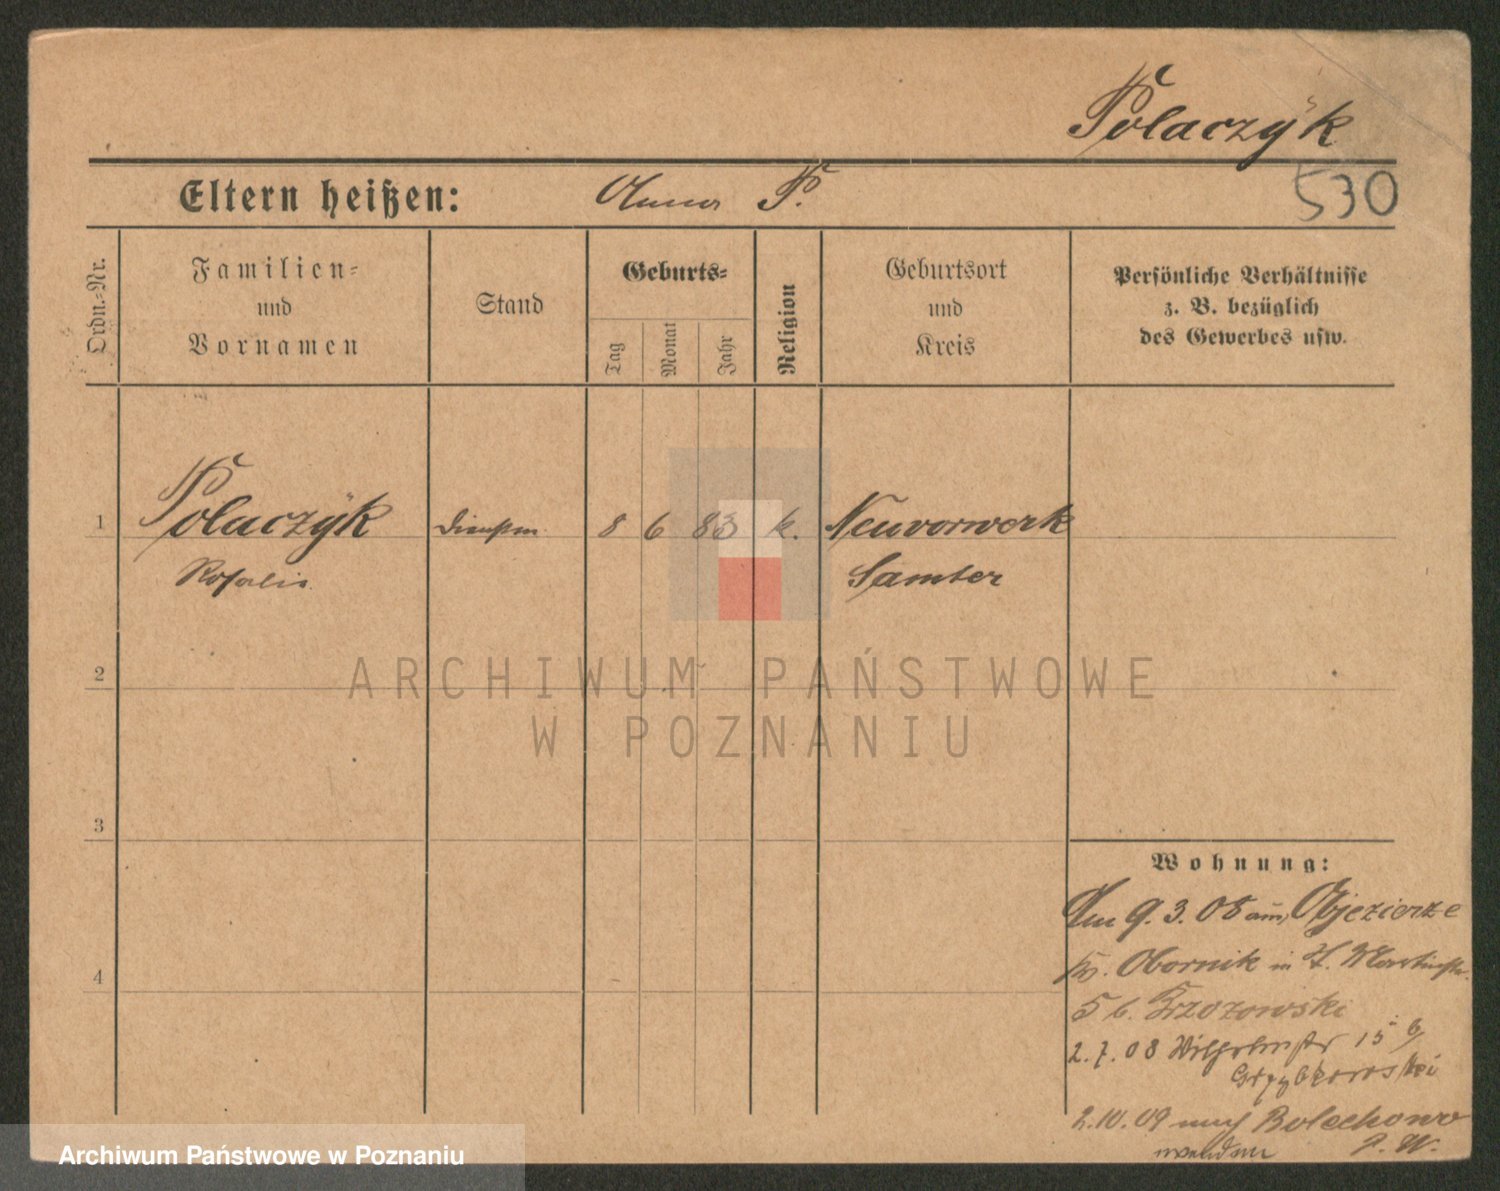 Polaczÿk
Eltern heißen: Anna P.
530
Ordn.-Nr.
Familien-
und
Vornamen
Stand
Geburts-
Tag
Monat
Jahr
Religion
Geburtsort
und
Kreis
Persönliche Verhältnisse
z. B. bezüglich
des Gewerbes usw.
1 Polaczÿk Dienstm. 8 6 83 k. Neuvorwerk
Rosalie Samter
ARCHIWUM PAŃSTWOWE
W POZNANIU
2
3
4
Wohnung:
Am 9. 3. 08 aus Objezierze
Kr. Obornik in Martinstr.
5 b. Brzozowski
2. 7. 08 Wilhelmstr 15 b/
Grzybkowski
2.10.09 nach Bolechowo
P. W.
Archiwum Państwowe w Poznaniu